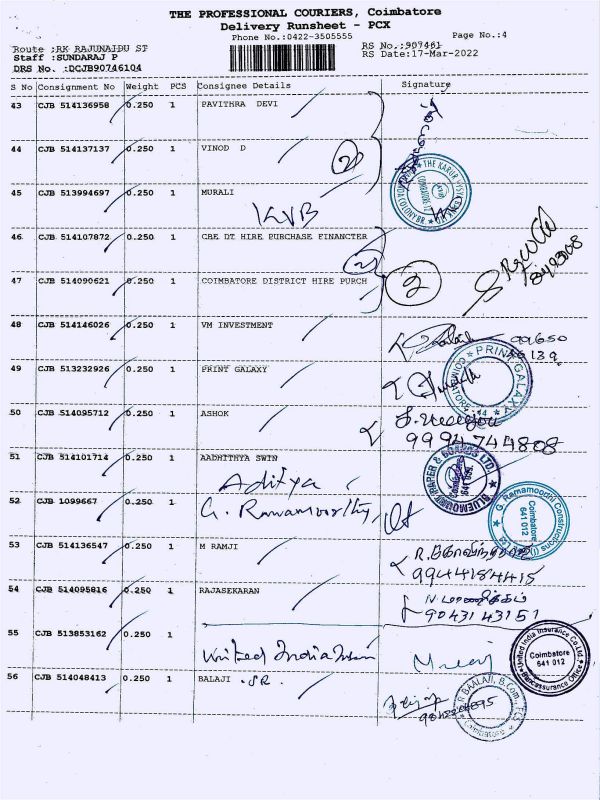 THE PROFESSIONAL COURIERS, Coimbatore
Delivery Runsheet - PCX
Phone No.:0422-3505555
Page No.:4
Route :RK RAJUNAIDU ST
RS No.:907461
Staff :SUNDARAJ P
RS Date:17-Mar-2022
DRS No. :DCJB90746104
S No Consignment No Weight PCS Consignee Details Signature
43 CJB 514136958 0.250 1 PAVITHRA DEVI
44 CJB 514137137 0.250 1 VINOD D
2
45 CJB 513994697 0.250 1 MURALI
KVB
46 CJB 514107872 0.250 1 CBE DT HIRE PURCHASE FINANCIER
2
47 CJB 514090621 0.250 1 COIMBATORE DISTRICT HIRE PURCH
2
48 CJB 514146026 0.250 1 VM INVESTMENT
99650
46139
49 CJB 513232926 0.250 1 PRINT GALAXY
PRINT GALAXY
COIMBATORE
50 CJB 514095712 0.250 1 ASHOK
9994744808
51 CJB 514101714 0.250 1 AADHITHYA SWIN
Aditya
52 CJB 1099667 0.250 1 G. Ramamoorthy
G. Ramamoorthi Constructions (I)
Coimbatore
641 012
53 CJB 514136547 0.250 1 M RAMJI
9944184415
54 CJB 514095816 0.250 1 RAJASEKARAN
9043143151
55 CJB 513853162 0.250 1
United India Insu
United India Insurance Co.Ltd.
Coimbatore
641 012
Bancassurance Office
56 CJB 514048413 0.250 1 BALAJI .SR.